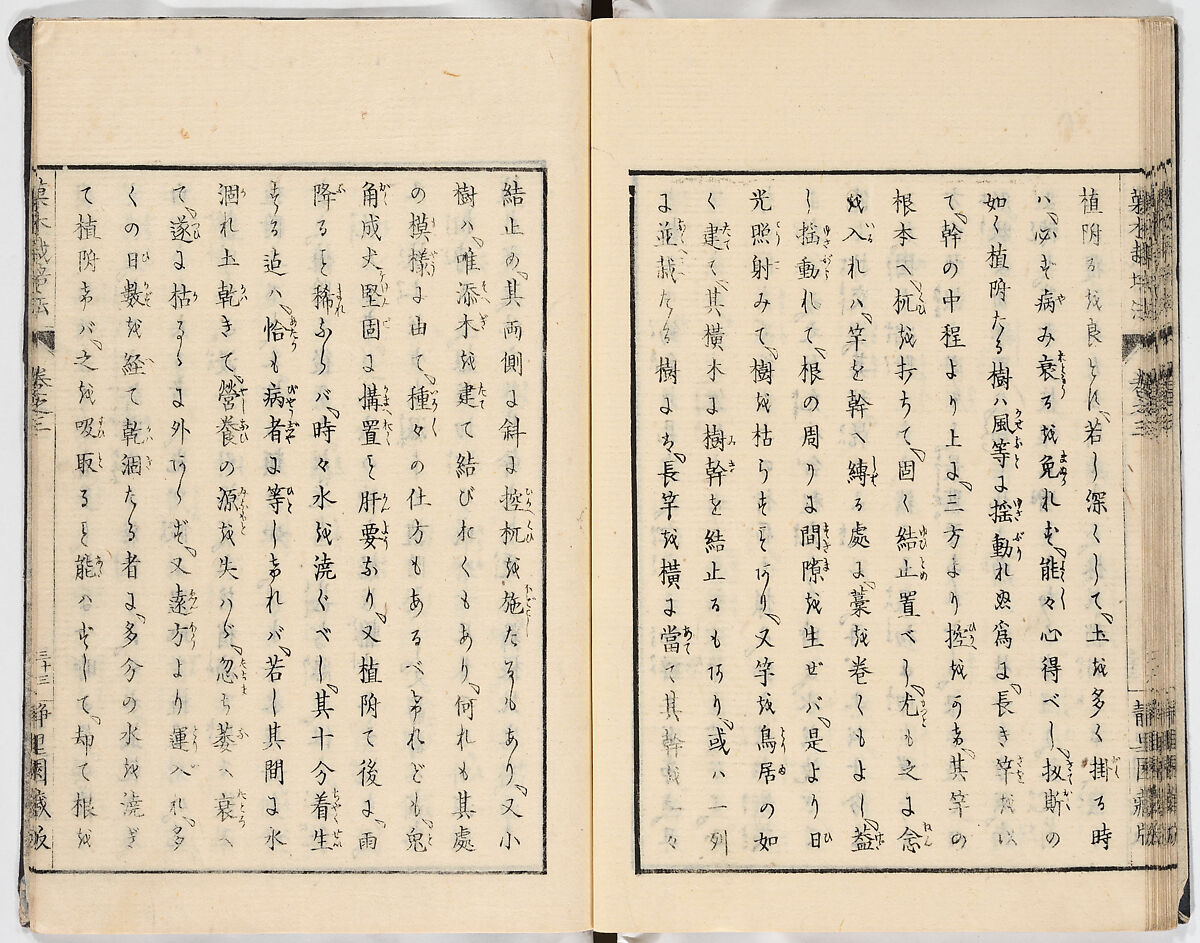 植附るを良とす、若し深くして、土を多く掛る時
ハ、必ず病み衰るを免れず、能々心得べし、扨斯の
如く植附たる樹ハ風等に揺動れぬ爲に、長き竿を以
て、幹の中程より上に、三方より控をかき、其竿の
根本へ杭を打ちて、固く結止置べし、尤も之に念
を入れバ、竿を幹へ縛る處に、藁を巻くもよし、蓋
し揺動れて、根の周りに間隙を生ぜバ、是より日
光照射みて、樹を枯らすことあり、又竿を鳥居の如
く建て、其横木に樹幹を結止るもあり、或ハ一列
に並栽たる樹にハ、長竿を横に當て其幹を一々
結止め、其両側に斜に控杭を施たるもあり、又小
樹ハ、唯添木を建て結びおくもあり、何れも其處
の模様に由て、種々の仕方もあるべけれども、兎
角成丈堅固に搆置こと肝要なり、又植附て後に、雨
降ること稀ならバ、時々水を澆ぐべし、其十分着生
する迠ハ、恰も病者に等しけれバ、若し其間に水
涸れ土乾きて、營養の源を失ハゞ、忽ち萎へ衰へ
て、遂に枯るゝに外あらず、又遠方より運ハれ、多
くの日數を経て乾涸たる者に、多分の水を澆ぎ
て植附けバ、之を吸取ること能ハずして、却て根を
菓木栽培法
巻之三
三十三
静里園蔵版